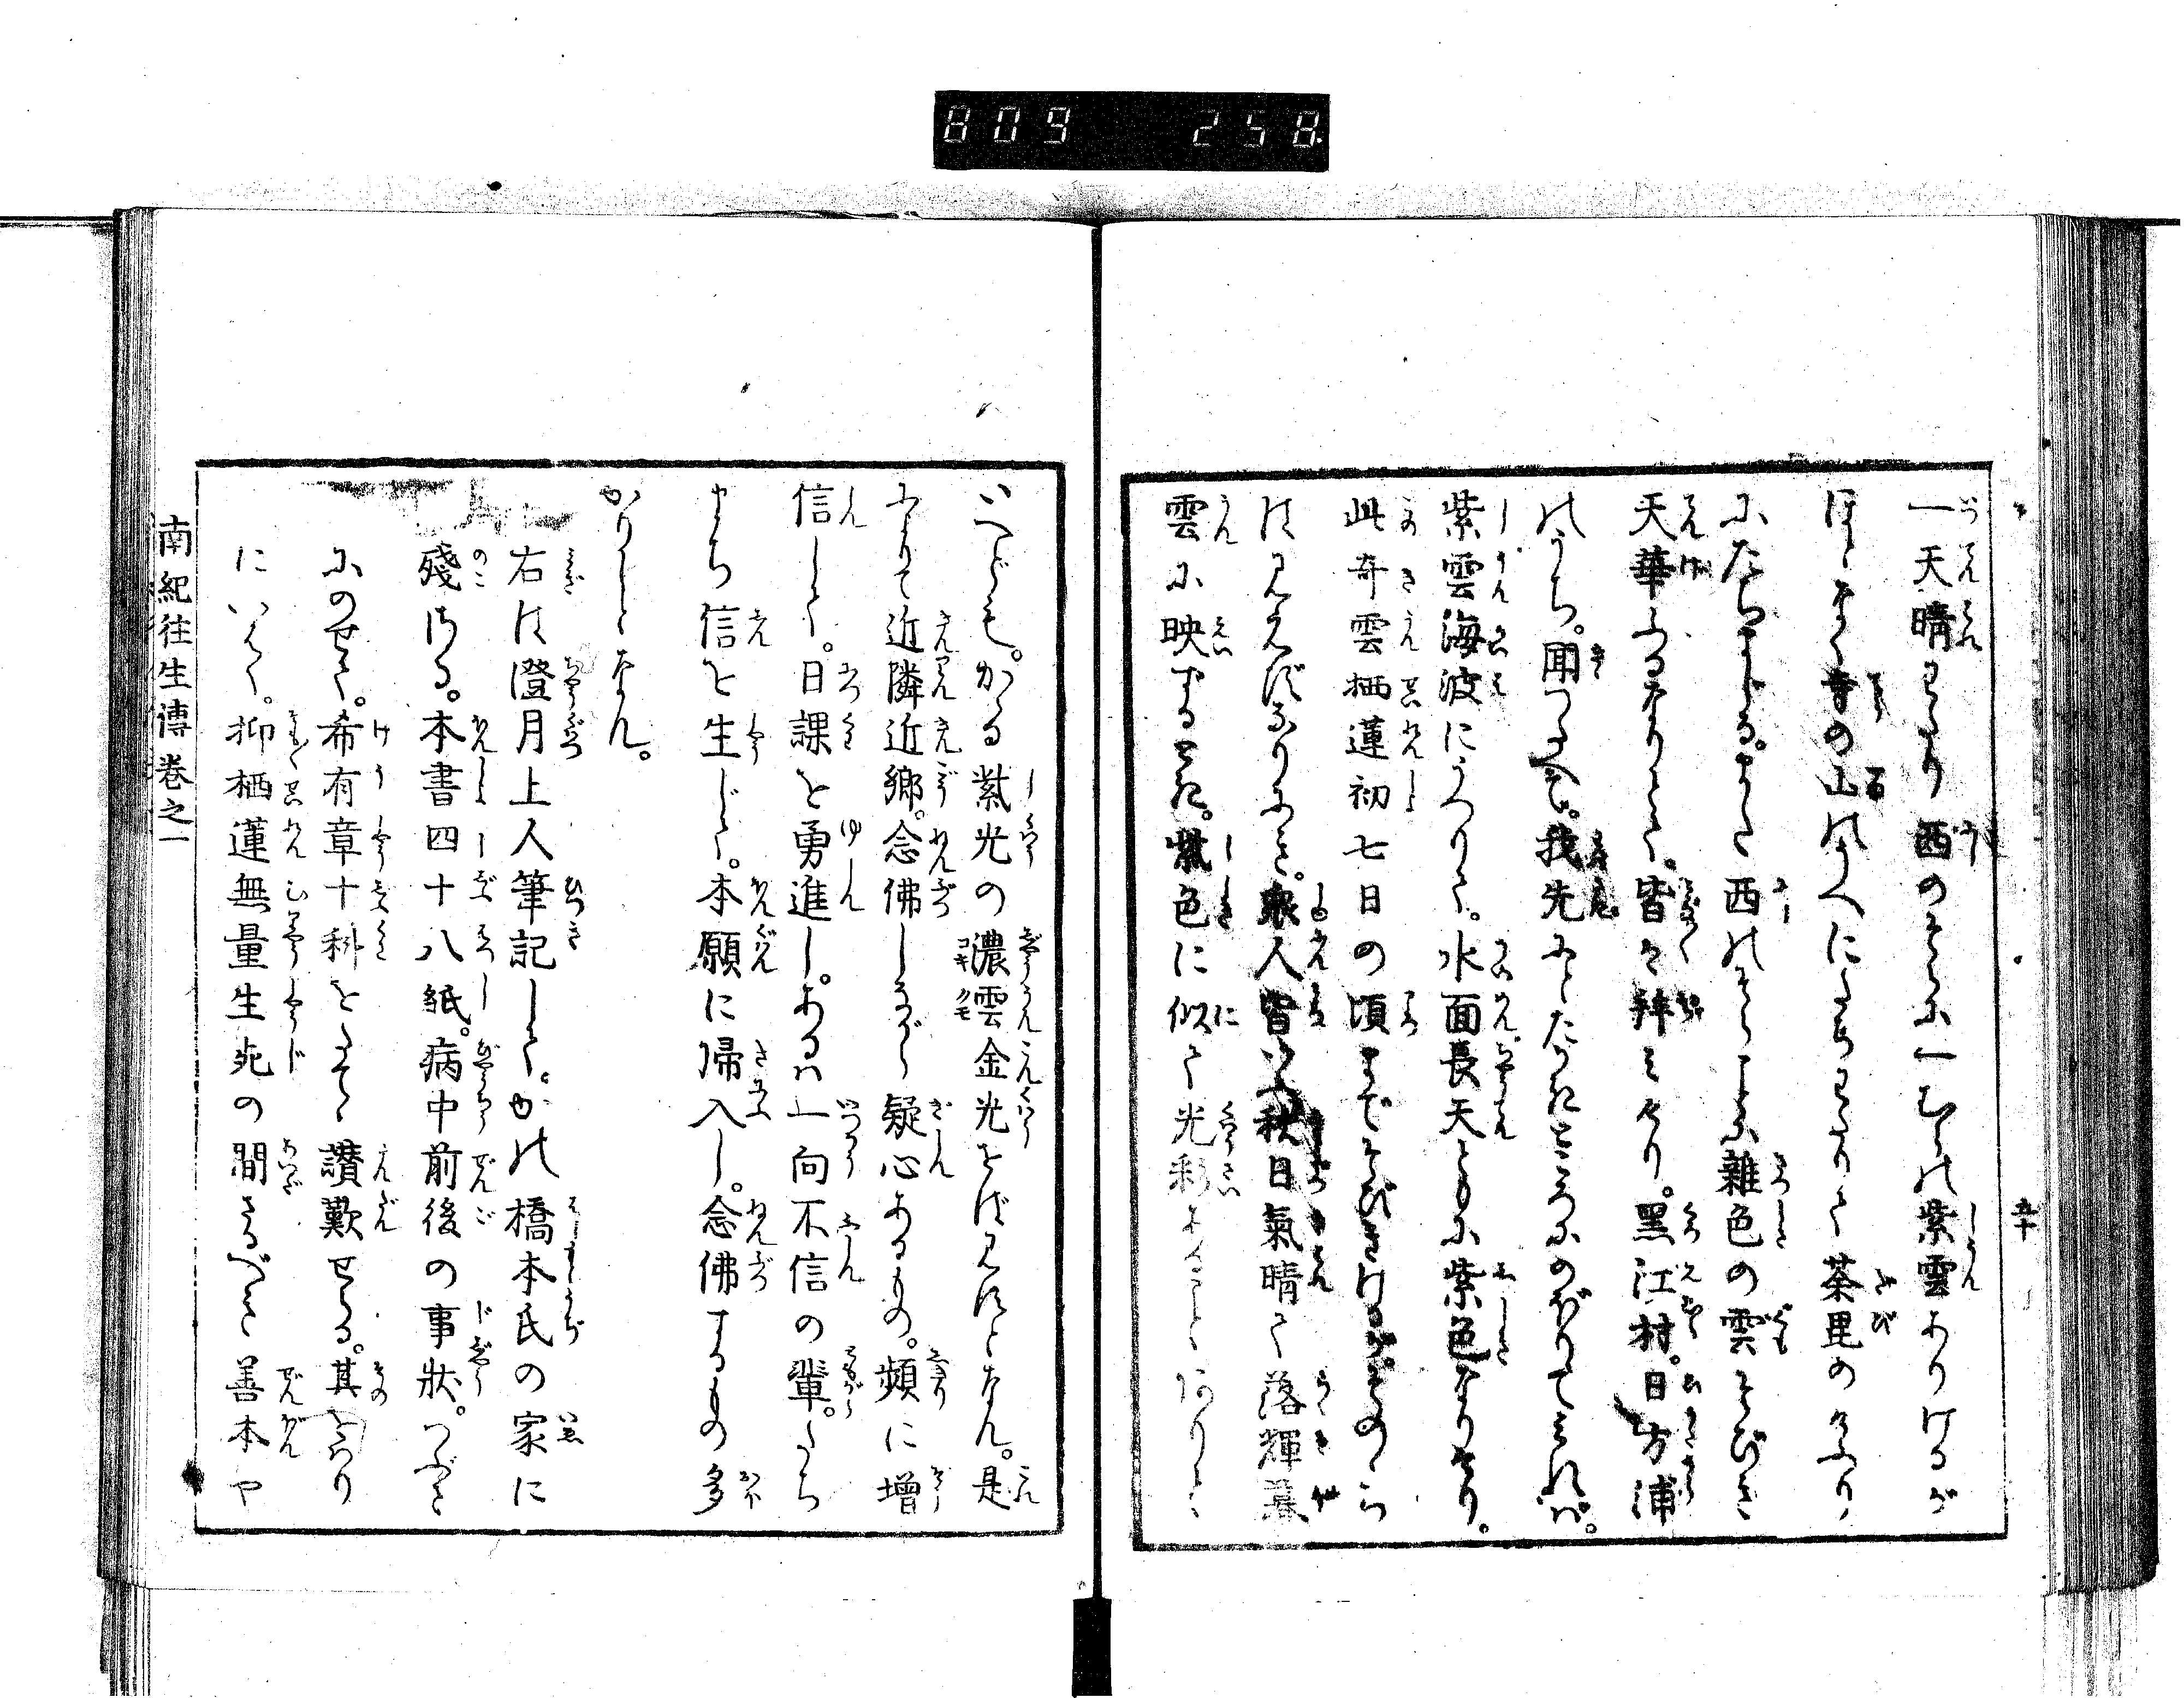 809 258
一天晴わたり西のそらに一むらの紫雲ありけるが
ほどなく寺の山のうへにたちわたりて荼毘のけふり
にたちまじる。また西のそらより雜色の雲たなびき
天華ふるなりとて。皆々拜みけり。黑江村。日方浦
のうち。聞つたへて。我先にとたかきところにのぼりてみれバ。
紫雲海波にうつりて。水面長天ともに紫色なりけり。
此奇雲栖蓮初七日の頃までたなびきけるが。そのゝち
はみえずなりにき。衆人皆いふ秋日氣晴て落輝暮
雲に映するとき。紫色に似て光彩あることありと
いへども。かゝる紫光の濃雲金光をばみずとなん。是
によりて近隣近鄉。念佛しながら疑心あるもの。頻に增
信して。日課を勇進し。あるハ一向不信の輩。たち
まち信を生じて。本願に歸入し。念佛するもの多
かりしとなん。
右は澄月上人筆記して。かの橋本氏の家に
殘さる。本書四十八紙。病中前後の事狀。つぶさ
にのせて。希有章十科をたてゝ讚歎せらる。其をはり
にいはく。抑栖蓮無量生死の間さるべき善本や
南紀往生傳卷之一
五十